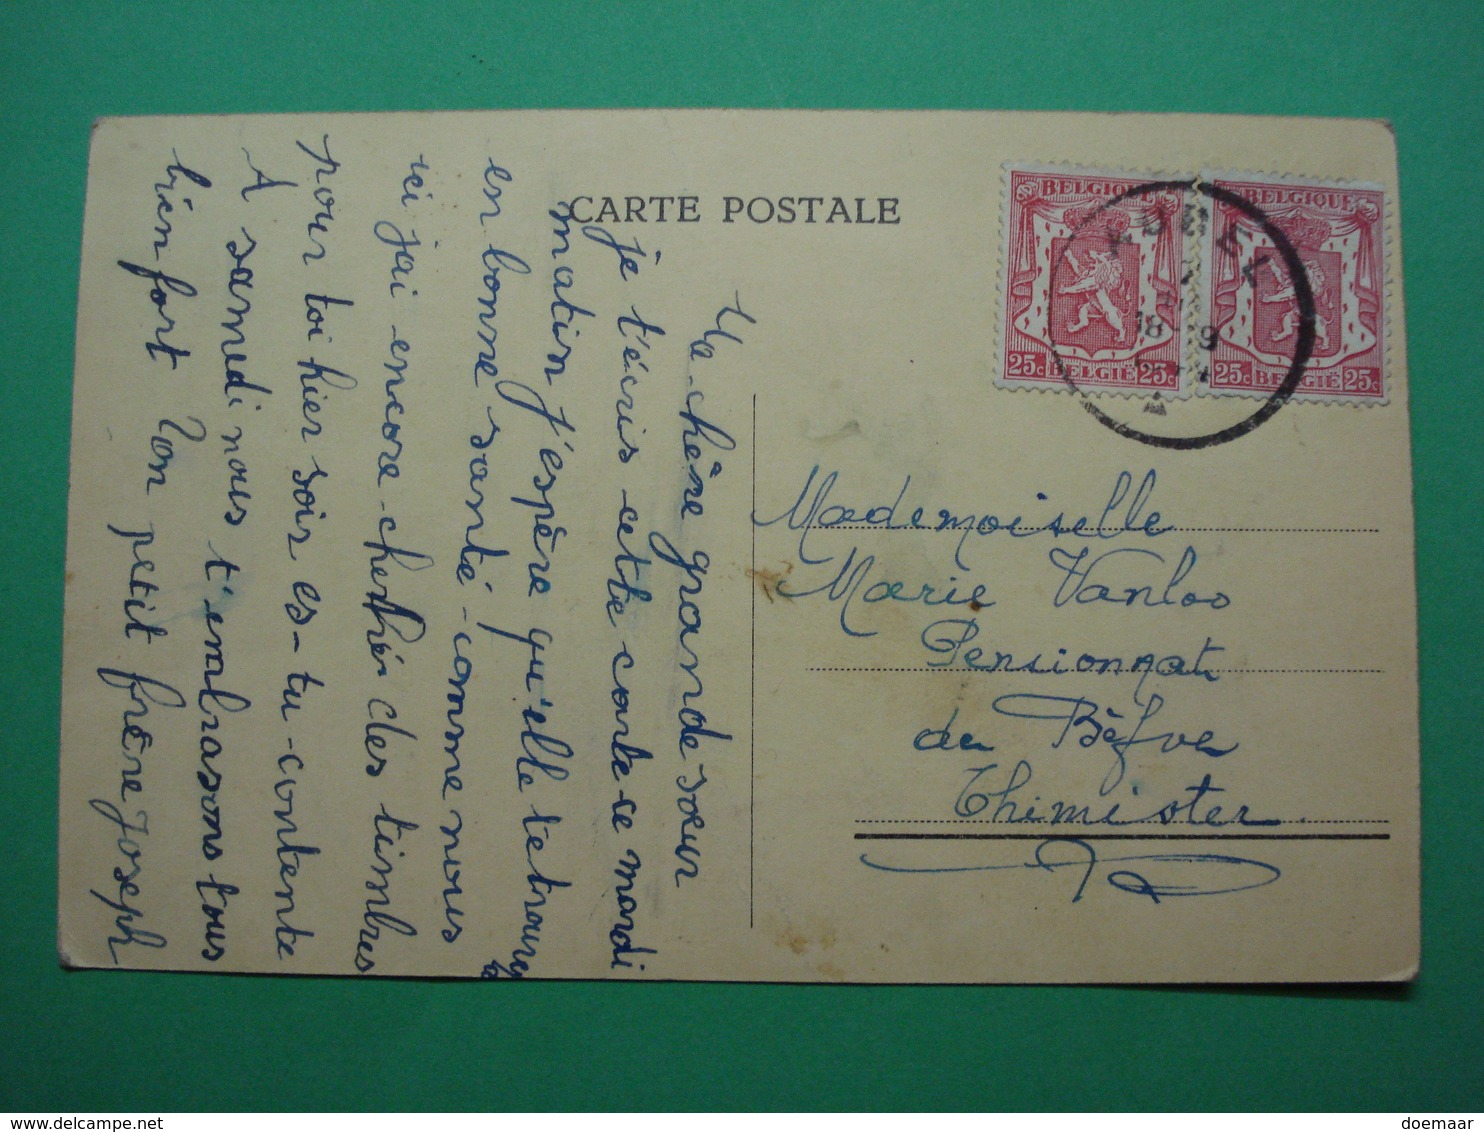 CARTE POSTALE
Ma chère grande sœur
je t'écris cette carte ce mardi
matin j'espère qu'elle te trouvera
en bonne santé - comme nous
ici j'ai encore cherché des timbres
pour toi hier soir es-tu contente
A samedi nous t'embrasons tous
bien fort Ton petit frère Joseph
BELGIQUE
25c BELGIË 25c
BELGIQUE
25c BELGIË 25c
AUBEL
18 9
Mademoiselle
Marie Vanloo
Pensionnat
de Bèfve
Thimister.
doemaar